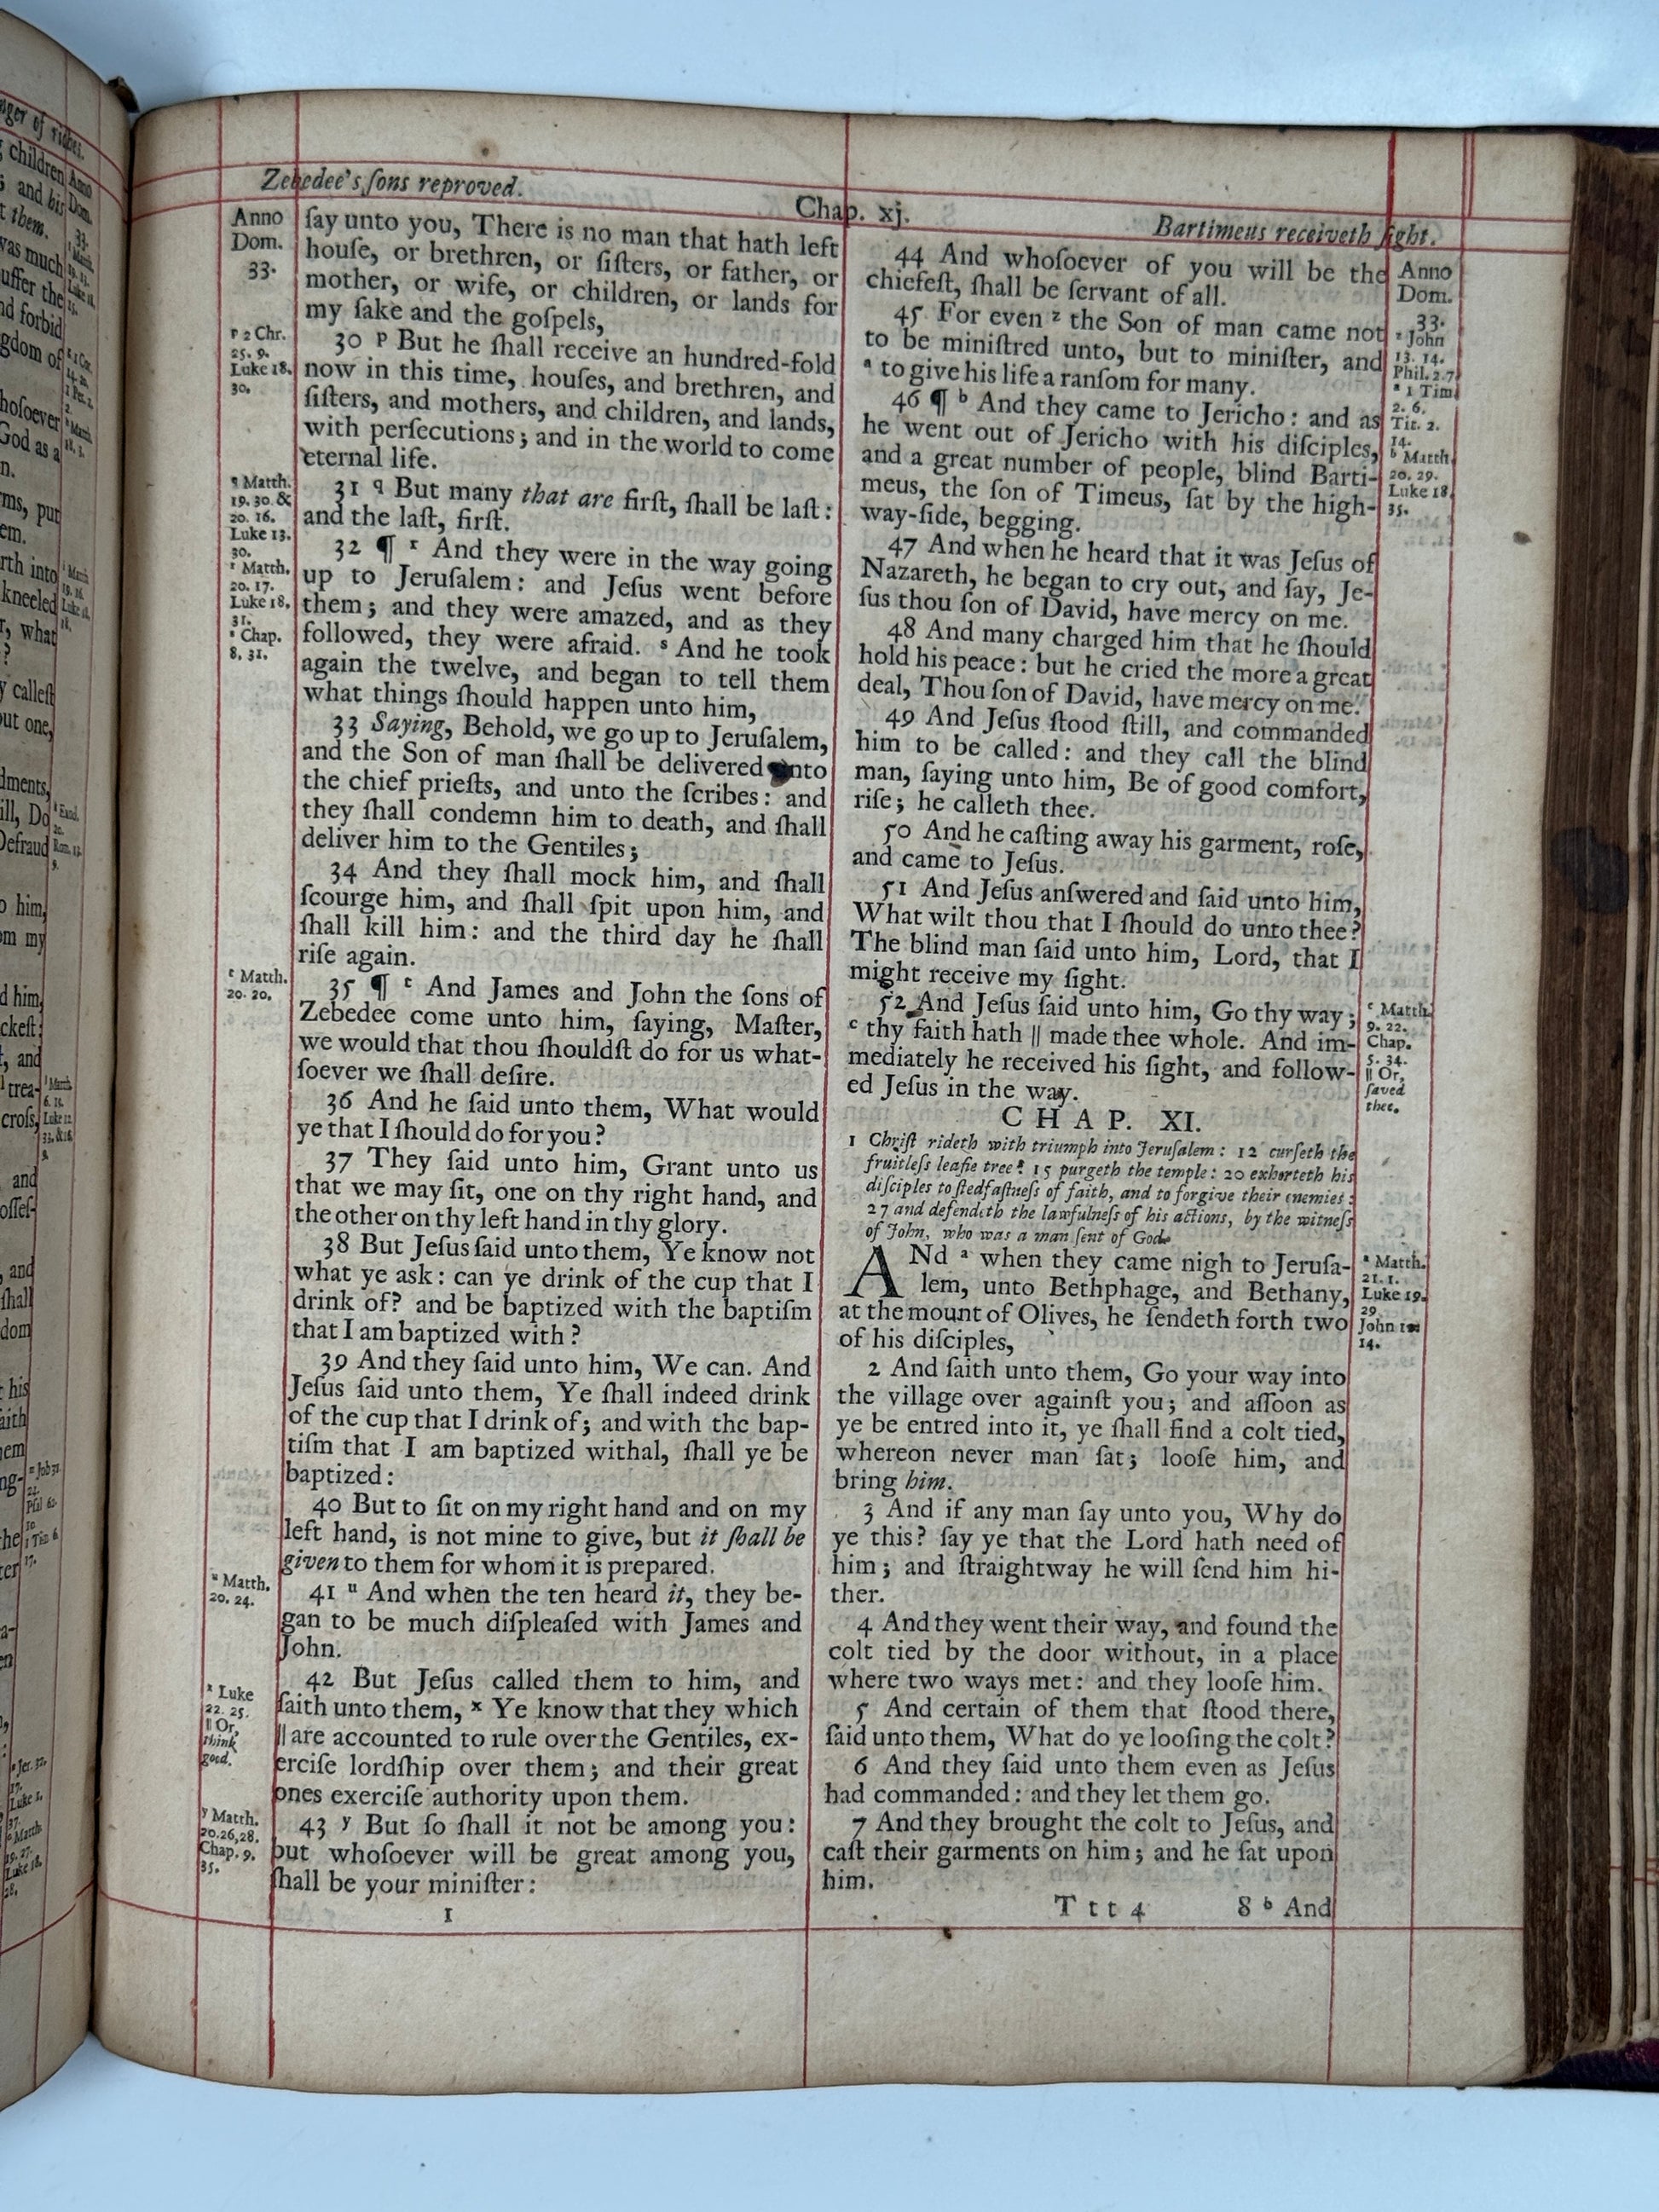 Zebedee's ſons reproved.
Chap. xj.
Bartimeus receiveth ſight.
Anno
Dom.
33.
ſay unto you, There is no man that hath left
houſe, or brethren, or ſiſters, or father, or
mother, or wife, or children, or lands for
my ſake and the goſpels,
30 p But he ſhall receive an hundred-fold
now in this time, houſes, and brethren, and
ſiſters, and mothers, and children, and lands,
with perſecutions; and in the world to come
eternal life.
31 q But many that are firſt, ſhall be laſt:
and the laſt, firſt.
32 ¶ r And they were in the way going
up to Jeruſalem: and Jeſus went before
them; and they were amazed, and as they
followed, they were afraid. s And he took
again the twelve, and began to tell them
what things ſhould happen unto him,
33 Saying, Behold, we go up to Jeruſalem,
and the Son of man ſhall be delivered unto
the chief prieſts, and unto the ſcribes: and
they ſhall condemn him to death, and ſhall
deliver him to the Gentiles;
34 And they ſhall mock him, and ſhall
ſcourge him, and ſhall ſpit upon him, and
ſhall kill him: and the third day he ſhall
riſe again.
35 ¶ t And James and John the ſons of
Zebedee come unto him, ſaying, Maſter,
we would that thou ſhouldſt do for us what-
ſoever we ſhall deſire.
36 And he ſaid unto them, What would
ye that I ſhould do for you?
37 They ſaid unto him, Grant unto us
that we may ſit, one on thy right hand, and
the other on thy left hand in thy glory.
38 But Jeſus ſaid unto them, Ye know not
what ye ask: can ye drink of the cup that I
drink of? and be baptized with the baptiſm
that I am baptized with?
39 And they ſaid unto him, We can. And
Jeſus ſaid unto them, Ye ſhall indeed drink
of the cup that I drink of; and with the bap-
tiſm that I am baptized withal, ſhall ye be
baptized:
40 But to ſit on my right hand and on my
left hand, is not mine to give, but it ſhall be
given to them for whom it is prepared.
41 u And when the ten heard it, they be-
gan to be much diſpleaſed with James and
John.
42 But Jeſus called them to him, and
ſaith unto them, x Ye know that they which
|| are accounted to rule over the Gentiles, ex-
erciſe lordſhip over them; and their great
ones exerciſe authority upon them.
43 y But ſo ſhall it not be among you:
but whoſoever will be great among you,
ſhall be your miniſter:
1
p 2 Chr.
25. 9.
Luke 18.
30.
q Matth.
19. 30. &
20. 16.
Luke 13.
30.
r Matth.
20. 17.
Luke 18.
31.
s Chap.
8. 31.
t Matth.
20. 20.
u Matth.
20. 24.
x Luke
22. 25.
|| Or,
think
good.
y Matth.
20. 26, 28.
Chap. 9.
35.
44 And whoſoever of you will be the
chiefeſt, ſhall be ſervant of all.
45 For even z the Son of man came not
to be miniſtred unto, but to miniſter, and
a to give his life a ranſom for many.
46 ¶ b And they came to Jericho: and as
he went out of Jericho with his diſciples,
and a great number of people, blind Barti-
meus, the ſon of Timeus, ſat by the high-
way-ſide, begging.
47 And when he heard that it was Jeſus of
Nazareth, he began to cry out, and ſay, Je-
ſus thou ſon of David, have mercy on me.
48 And many charged him that he ſhould
hold his peace: but he cried the more a great
deal, Thou ſon of David, have mercy on me.
49 And Jeſus ſtood ſtill, and commanded
him to be called: and they call the blind
man, ſaying unto him, Be of good comfort,
riſe; he calleth thee.
50 And he caſting away his garment, roſe,
and came to Jeſus.
51 And Jeſus anſwered and ſaid unto him,
What wilt thou that I ſhould do unto thee?
The blind man ſaid unto him, Lord, that I
might receive my ſight.
52 And Jeſus ſaid unto him, Go thy way;
c thy faith hath || made thee whole. And im-
mediately he received his ſight, and follow-
ed Jeſus in the way.
CHAP. XI.
1 Chriſt rideth with triumph into Jeruſalem: 12 curſeth the
fruitleſs leafie tree: 15 purgeth the temple: 20 exhorteth his
diſciples to ſtedfaſtneſs of faith, and to forgive their enemies:
27 and defendeth the lawfulneſs of his actions, by the witneſs
of John, who was a man ſent of God.
ANd a when they came nigh to Jeruſa-
lem, unto Bethphage, and Bethany,
at the mount of Olives, he ſendeth forth two
of his diſciples,
2 And ſaith unto them, Go your way into
the village over againſt you; and aſſoon as
ye be entred into it, ye ſhall find a colt tied,
whereon never man ſat; looſe him, and
bring him.
3 And if any man ſay unto you, Why do
ye this? ſay ye that the Lord hath need of
him; and ſtraightway he will ſend him hi-
ther.
4 And they went their way, and found the
colt tied by the door without, in a place
where two ways met: and they looſe him.
5 And certain of them that ſtood there,
ſaid unto them, What do ye looſing the colt?
6 And they ſaid unto them even as Jeſus
had commanded: and they let them go.
7 And they brought the colt to Jeſus, and
caſt their garments on him; and he ſat upon
him.
Ttt 4
8 b And
Anno
Dom.
33.
z John
13. 14.
Phil. 2. 7.
a 1 Tim.
2. 6.
Tit. 2.
14.
b Matth.
20. 29.
Luke 18.
35.
c Matth.
9. 22.
Chap.
5. 34.
|| Or,
ſaved
thee.
a Matth.
21. 1.
Luke 19.
29
John
14.